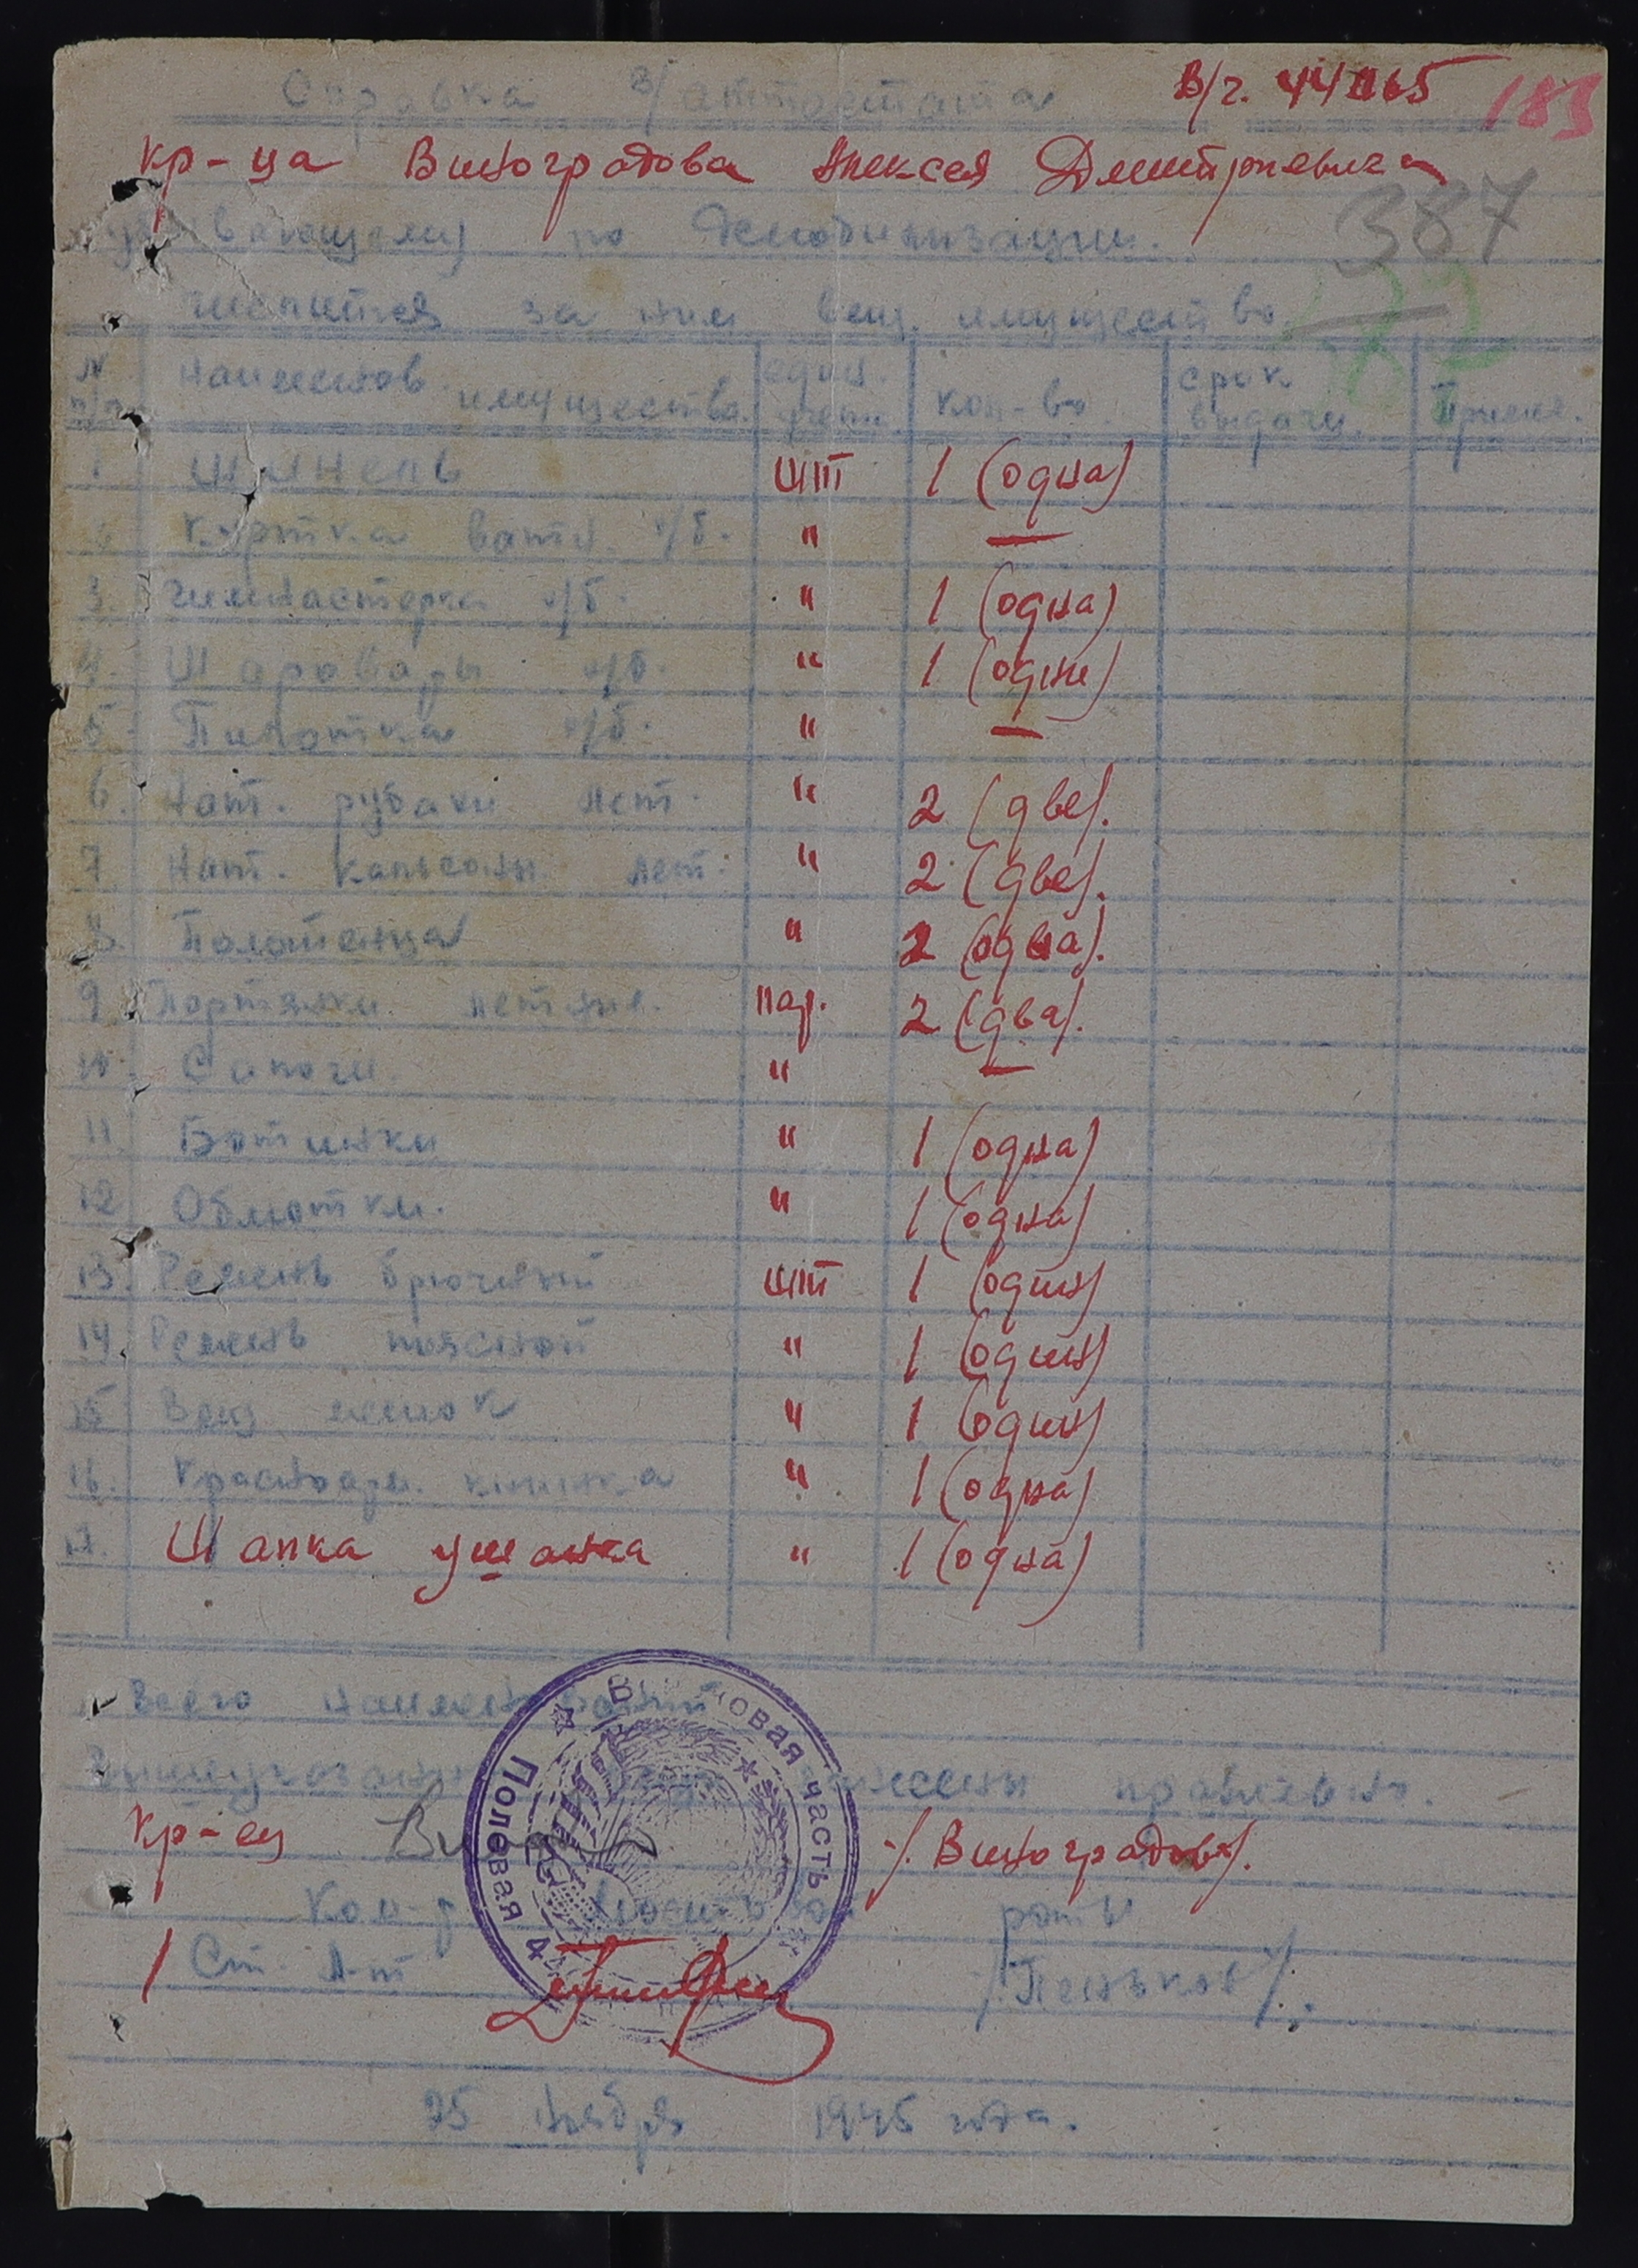 Справка в/аттестата В/г. 44065 183
кр-ца Виноградова Алексея Дмитриевича
убывающему по демобилизации. 387
числится за ним вещ. имущество. 82
N п/п Наименов. имущества. един. учетн. кол-во срок выдачи. Примеч.
1 Шинель шт 1 (одна)
2 Куртка ватн. х/б. " —
3. Гимнастерка х/б. " 1 (одна)
4. Шаровары х/б. " 1 (одни)
5 Пилотка х/б. " —
6. Нат. рубахи лет. " 2 (две).
7 Нат. кальсоны лет. " 2 (две).
8. Полотенца " 2 (два).
9 Портянки летние. пар. 2 (два).
10. Сапоги. " —
11. Ботинки " 1 (одна)
12 Обмотки. " 1 (одна)
13. Ремень брючный шт 1 (один)
14. Ремень поясной " 1 (один)
15 Вещ мешок " 1 (один)
16. Красноарм. книжка " 1 (одна)
17. Шапка ушанка " 1 (одна)
Всего наименований
правильно.
Кр-ец /Виноградов/.
Ком-р роты
Ст. Л-т /Пеньков/.
войсковая часть
Полевая
25 ноября 1945 года.